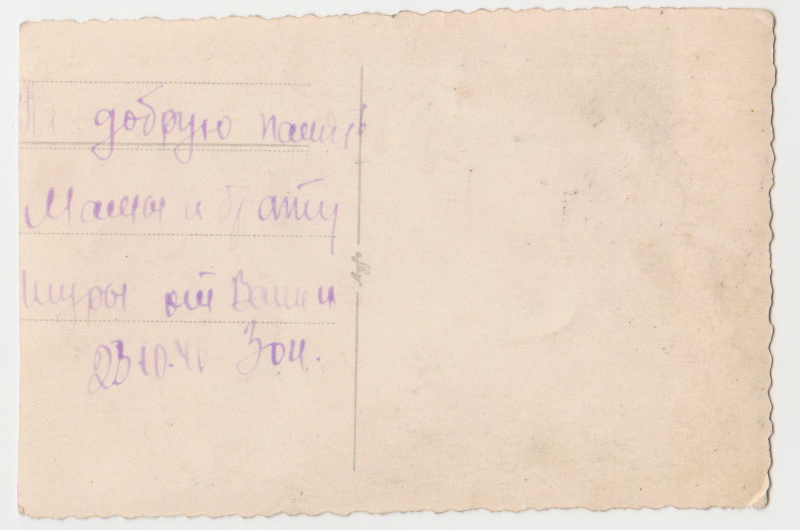 добрую память
Мамы и брату
Шуры от Вани и
23 10. 4 Зои.